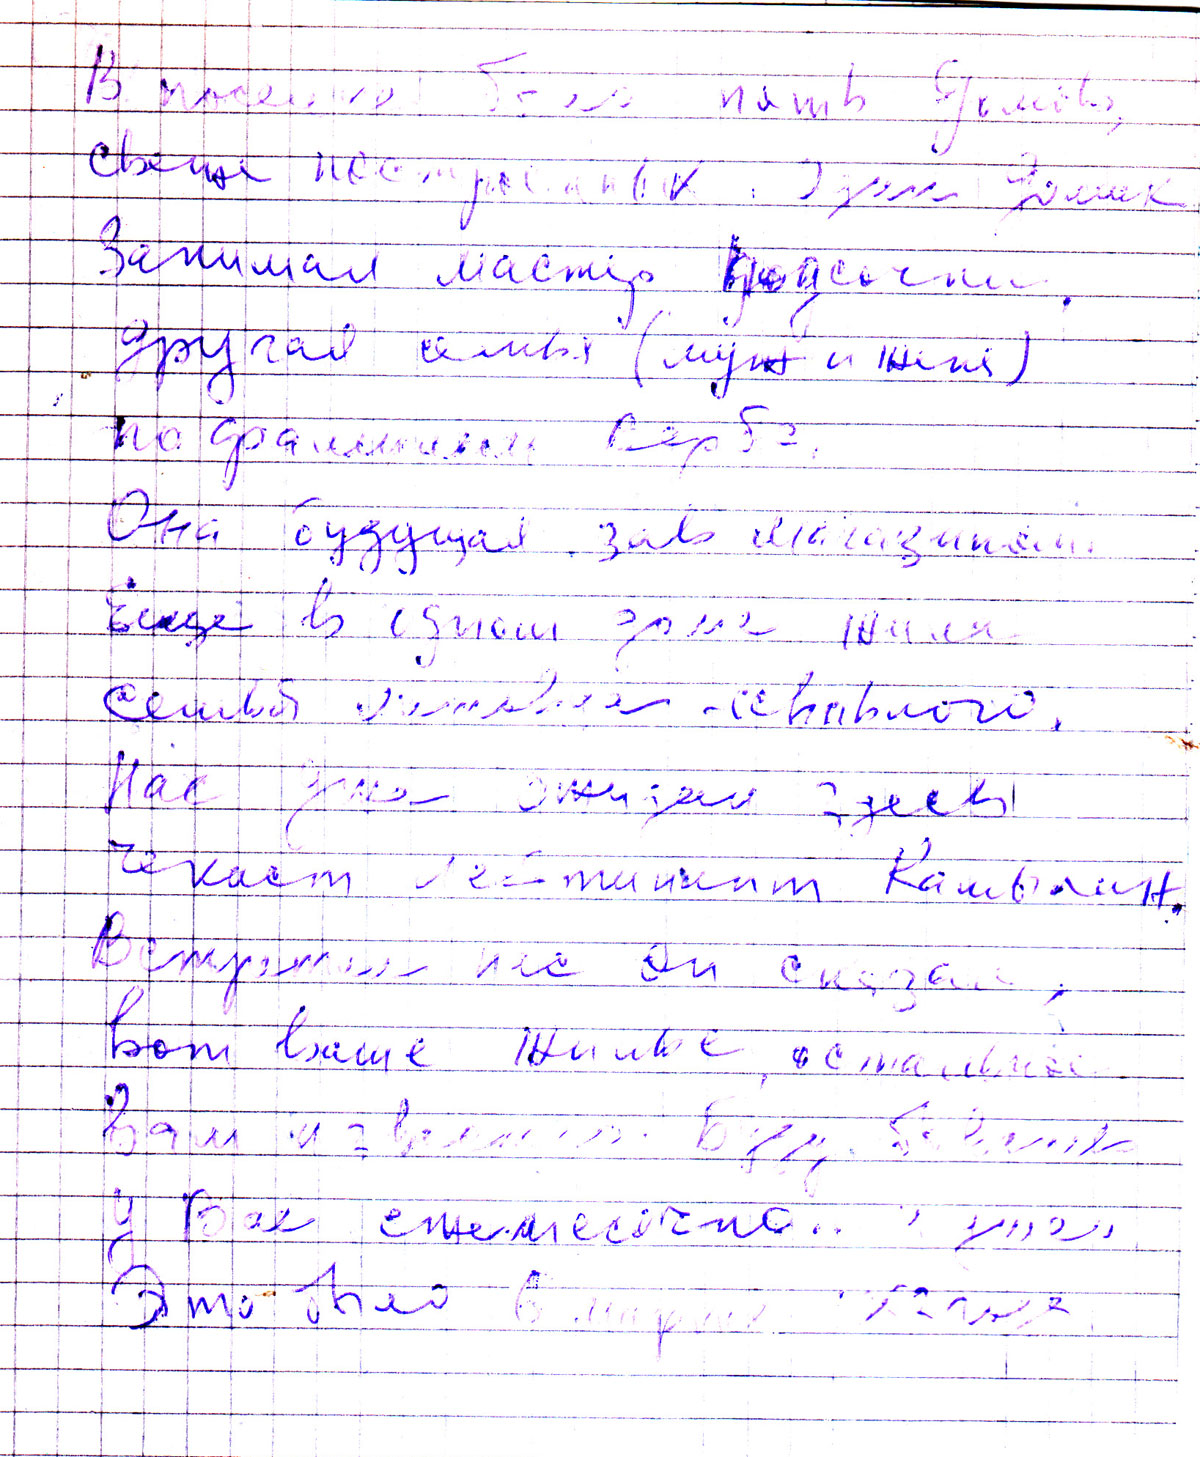 В поселке было пять домов,
свеже построенных. Один домик
Занимал мастер подсочки,
другая семья (муж и жена)
по фамилии Верба.
Она будущая зав магазином.
Еще в одном доме жила
семья
Нас уже ожидал здесь
чекист лейтинант
Встретил нас он сказал,
вот ваше жилье, остальное
Вам Буду бывать
у Вас ежемесячно..
Это было в марте